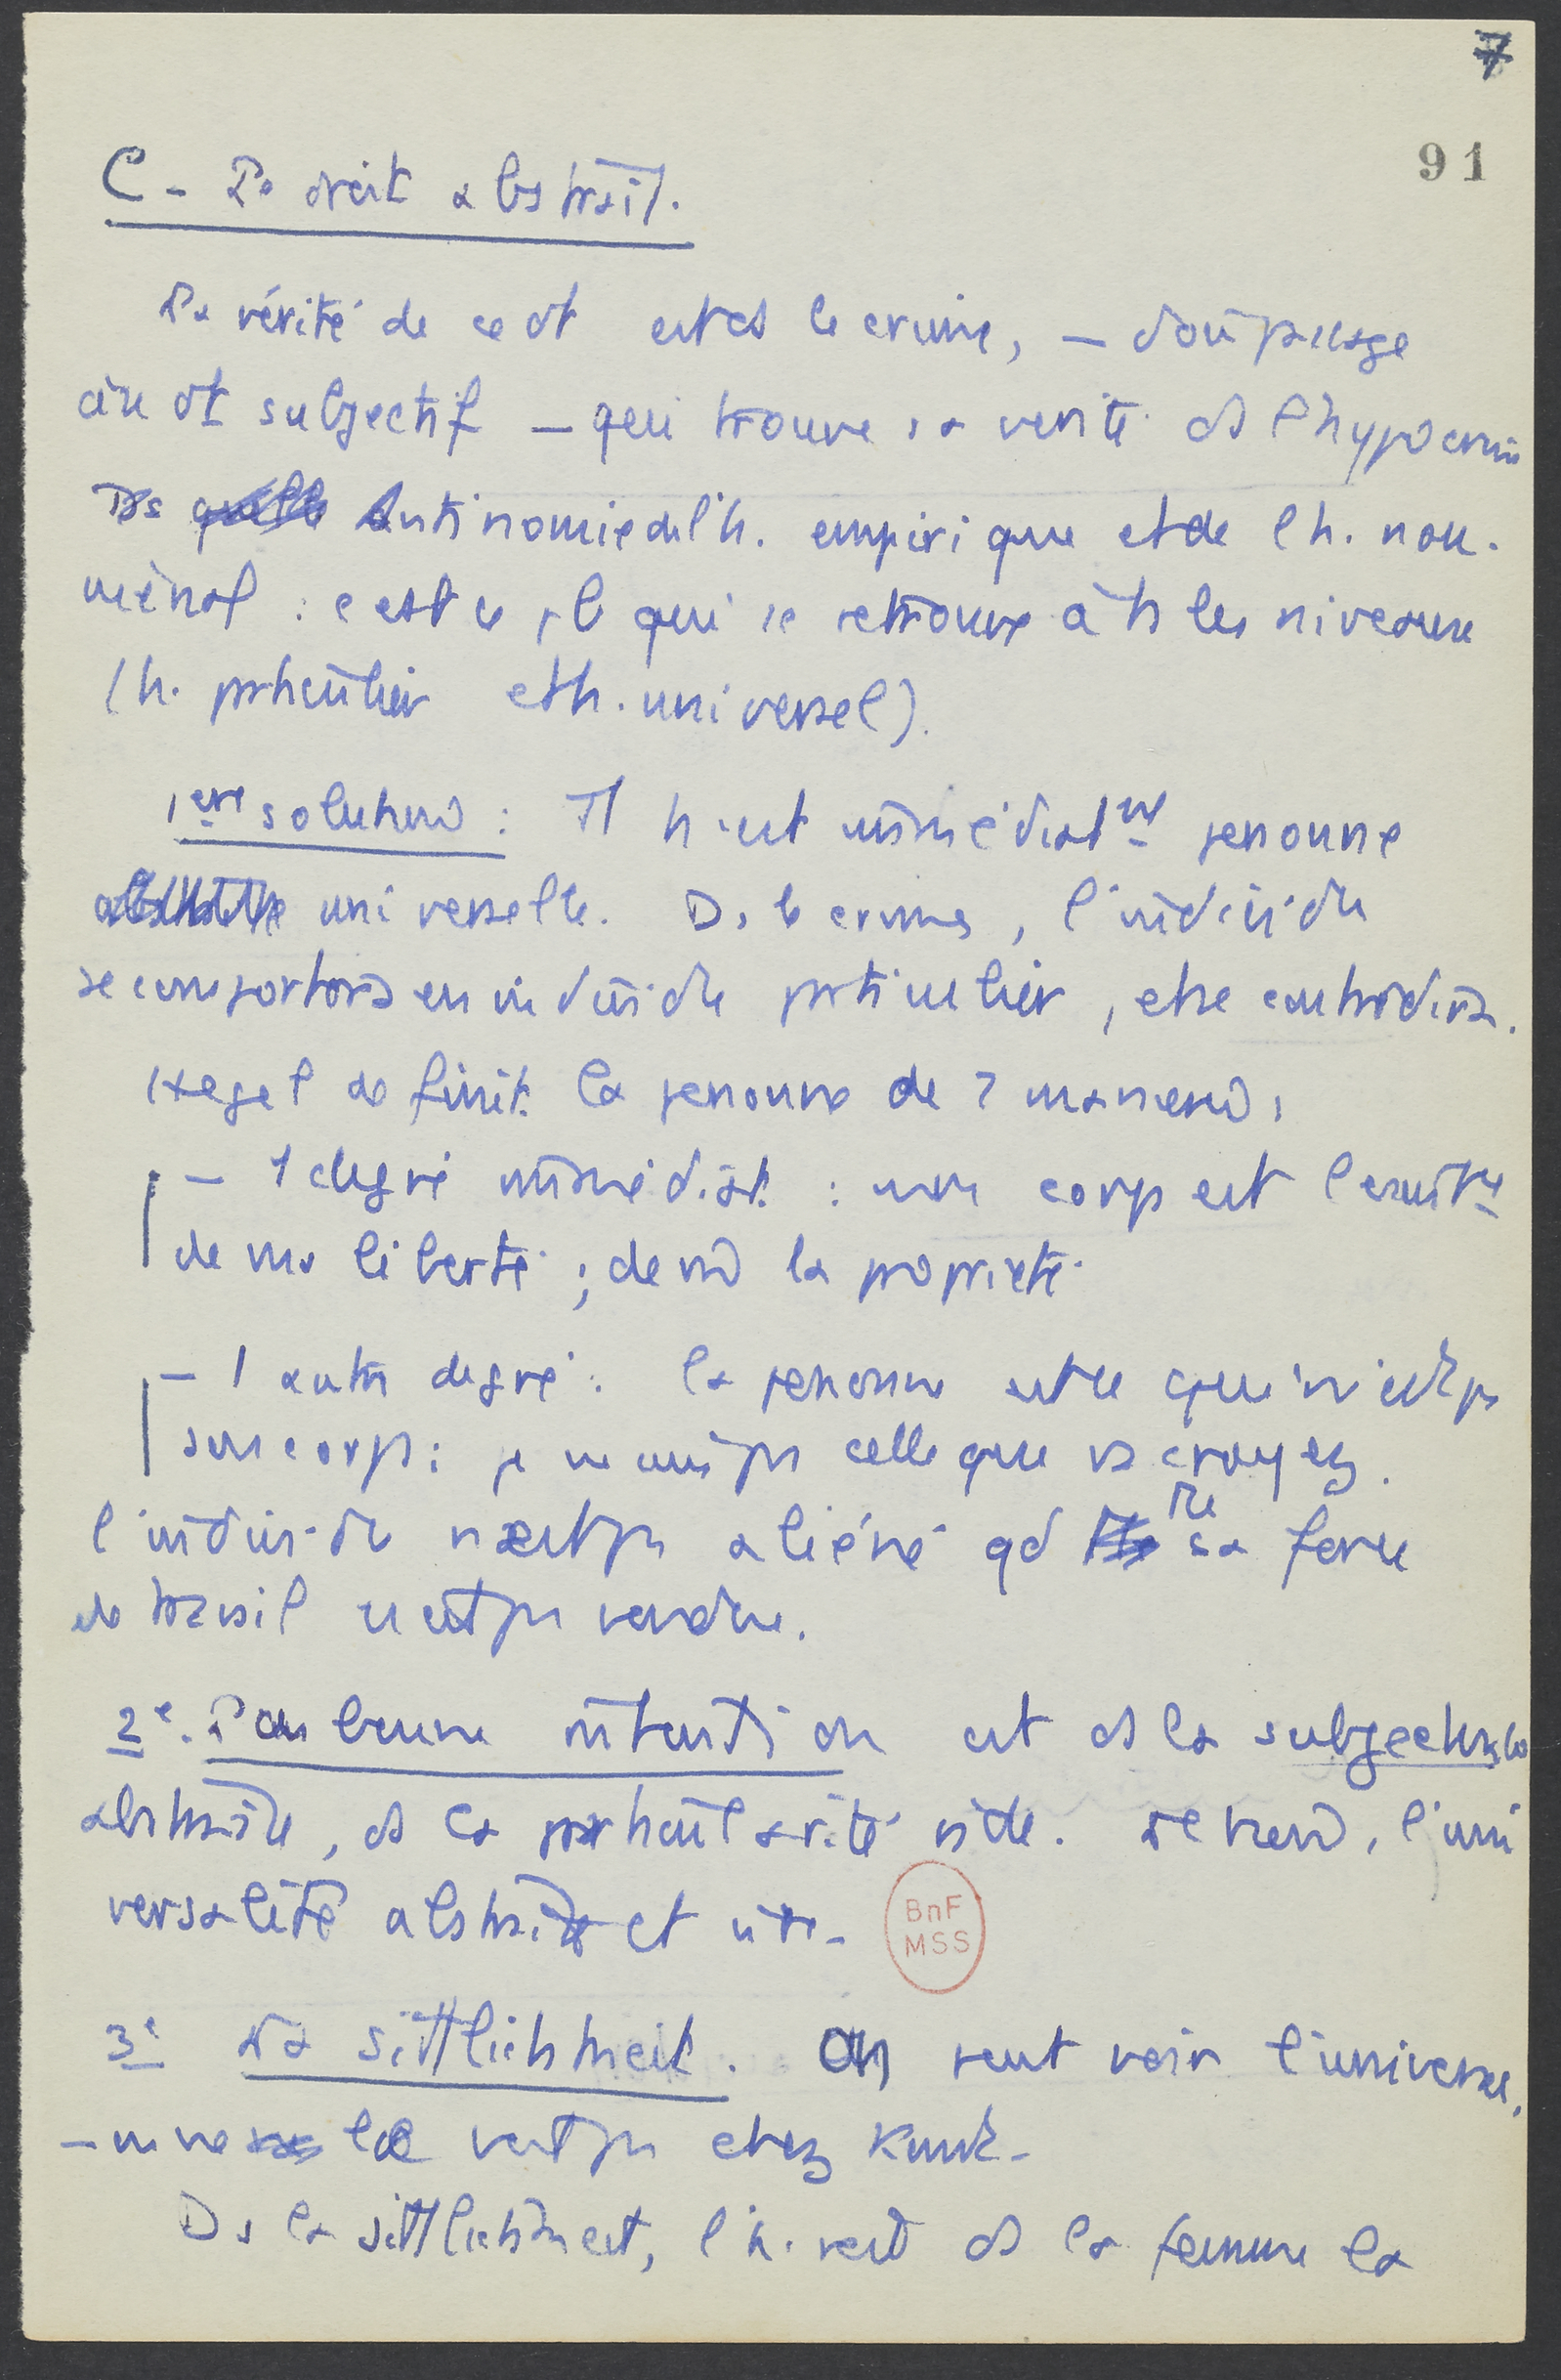 7
91
C - Le droit abstrait.
La vérité de ce dt est ds le crime, – d'où passage
au dt subjectif – qui trouve sa vérité ds l'hypocrisie
Ds antinomie de l'h. empirique et de l'h. nou-
ménal : c'est ce pb qui se retrouve à ts les niveaux
(h. particulier et h. universel).
1ère solution : Tt h. est immédiatmt personne
universelle. Ds le crime, l'individu
se comportera en individu particulier, et se contredira.
Hegel définit la personne de 2 manières :
– 1 degré immédiat : mon corps est l'exist.
de ma liberté ; de m la propriété
– 1 autre degré : la personne est ce qui n'est ps
son corps : je ne suis ps celle que vs croyez.
l'individu n'est ps aliéné qd sa force
de travail n'est ps vendue.
2e. La bonne intention est ds la subjectivité
abstraite, ds la particularité vide. , l'uni
versalité abstraite et vide.
3e La Sittlichkeit. On veut voir l'universel,
– on ne le voit ps chez Kant.
Ds la Sittlichkeit, l'h. voit ds la femme la
BnF
MSS